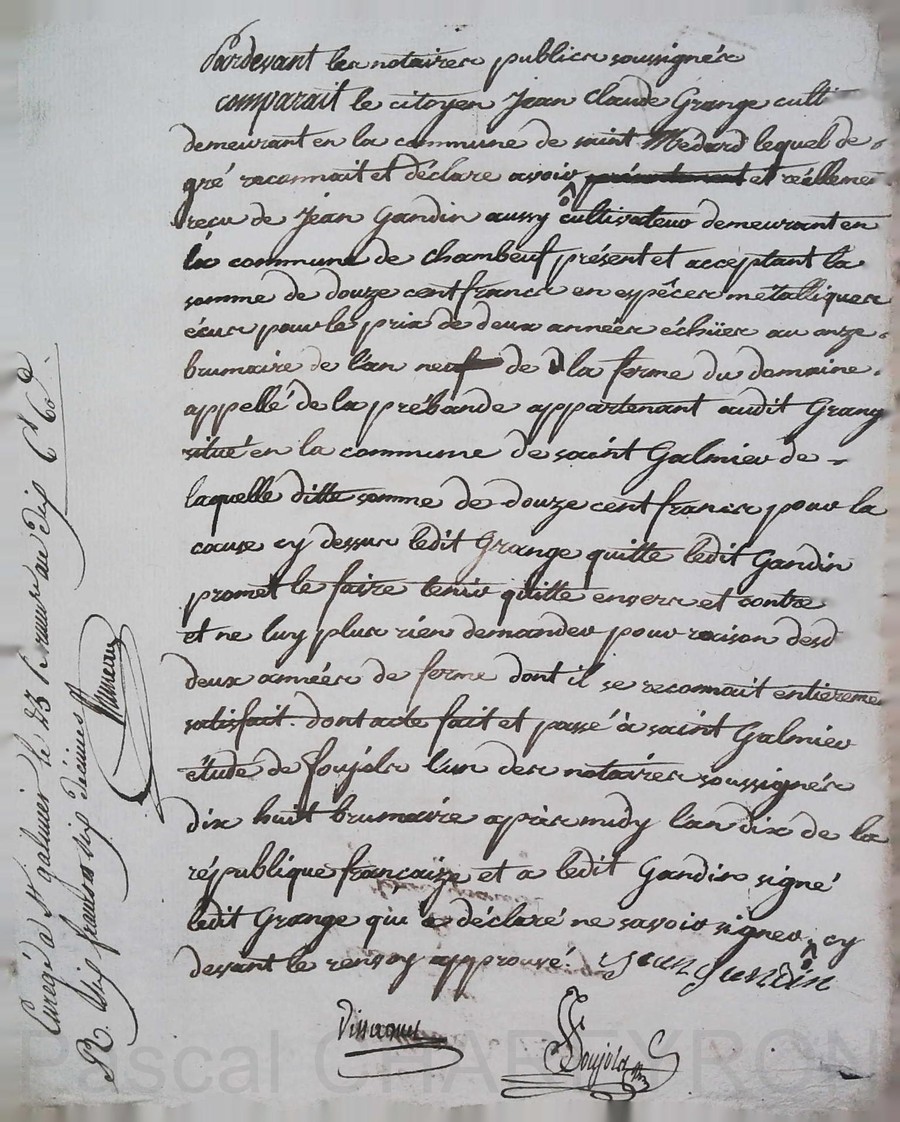 Pardevant les notaires publics soussignés
comparait le citoyen Jean Claude Grange culti
demeurant en la commune de saint Medard lequel de
gré reconnait et déclare avoir présentement et réelleme
recu de Jean Gandin aussy cultivateur demeurant en
la commune de chambeuf présent et acceptant la
somme de douze cent francs en espêces métalliques
écus pour le prix de deux années échües au onze
brumaire de l'an neuf de la ferme du domaine
appellé de la prébande appartenant audit Grang
situé en la commune de saint Galmier de
laquelle ditte somme de douze cent francs pour la
cause cy dessus ledit Grange quitte ledit Gandin
promet le faire tenir quitte envers et contre
et ne luy plus rien demander pour raison desd
deux années de ferme dont il se reconnait entiereme
satisfait. dont acte fait et passé à saint Galmier
étude de foujols l'un des notaires soussignés
dix huit brumaire après midy l'an dix de la
république françaize et a ledit Gandin signé
ledit Grange qui a déclaré ne savoir signer, cy
devant le renvoy approuvé. Jean gandin
foujols
Enregé à St galmier le 23 brumaire an dix
R. dix francs dix décimes
Pascal CHAREYRON